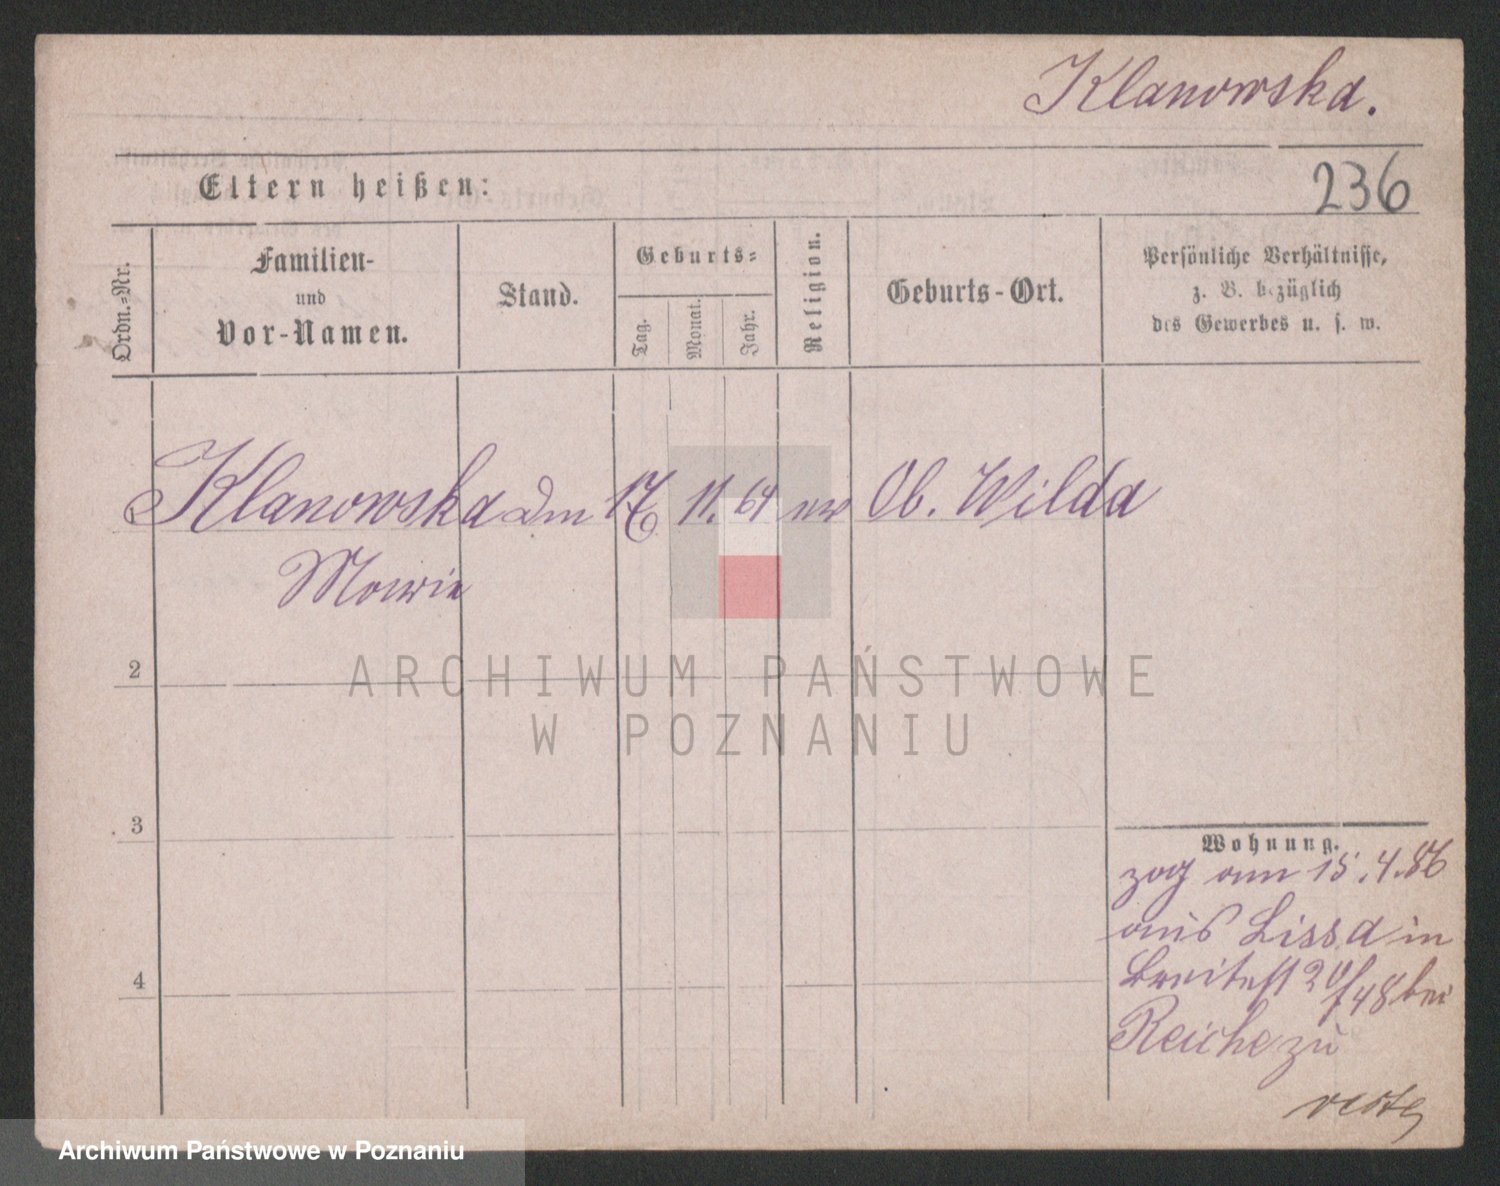 Klanowska.
236
Eltern heißen:
Ordn.-Nr.
Familien-
und
Vor-Namen.
Stand.
Geburts-
Tag.
Monat.
Jahr.
Religion.
Geburts-Ort.
Persönliche Verhältnisse,
z. B. bezüglich
des Gewerbes u. s. w.
Klanowska 17 11. 64 Ob. Wilda
Marie
2
3
4
Wohnung.
zog am 15.4.86
aus Lissa in
Breitestr 20/ bei
Reiche zu
ARCHIWUM PAŃSTWOWE
W POZNANIU
Archiwum Państwowe w Poznaniu